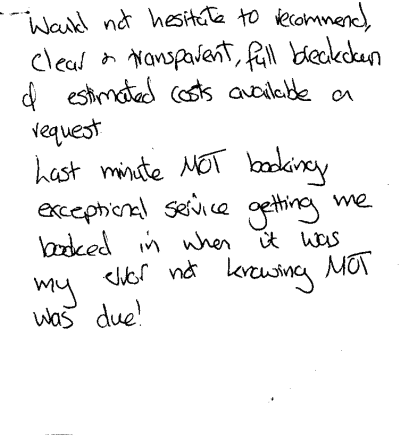 Would not hesitate to recommend,
Clear & transparent, full breakdown
of estimated costs available on
request
Last minute MOT booking
exceptional service getting me
booked in when it was
my error not knowing MOT
was due!